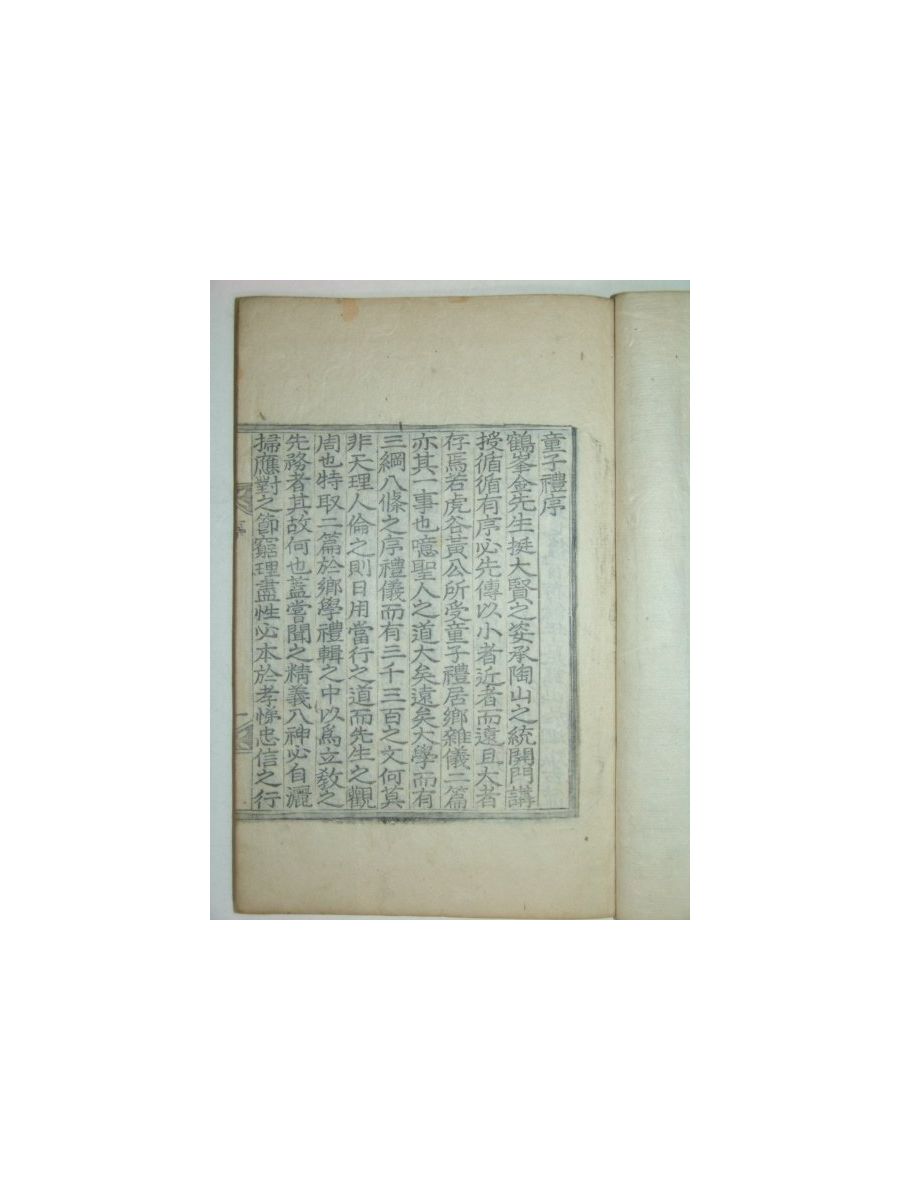 童子禮序
鶴峯金先生挺大賢之姿承陶山之統開門講
授循循有序必先傳以小者近者而遠且大者
存焉若虎谷黃公所受童子禮居鄉雜儀二篇
亦其一事也噫聖人之道大矣遠矣大學而有
三綱八條之序禮儀而有三千三百之文何莫
非天理人倫之則日用當行之道而先生之觀
周也特取二篇於鄉學禮輯之中以爲立敎之
先務者其故何也蓋嘗聞之精義入神必自灑
掃應對之節窮理盡性必本於孝悌忠信之行
序
一